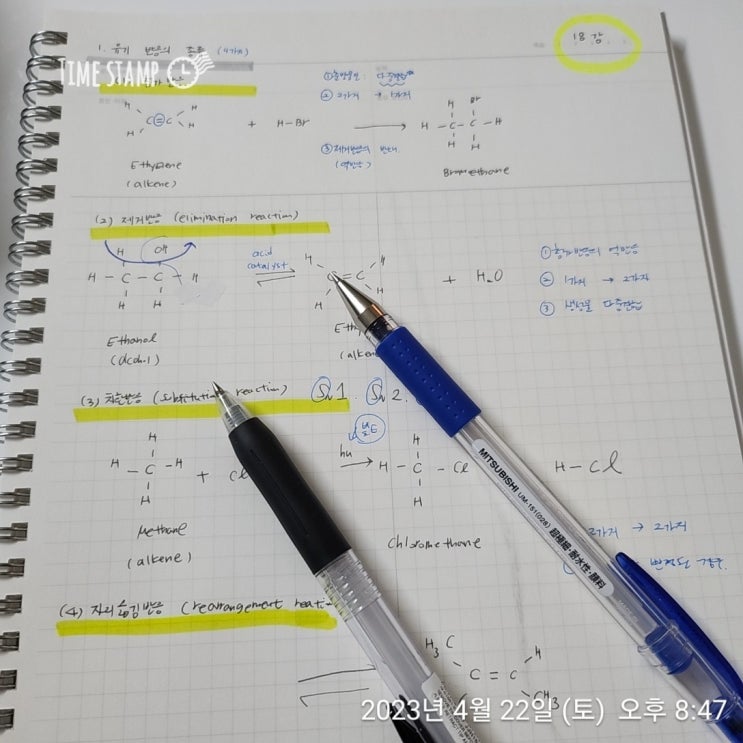 18강
1. 유기 반응의 종류 (4가지)
TIME STAMP
① 출발물질: 다중결합
② 2가지 → 1가지
③ 제거반응의 반대
(역반응)
H H H H C=C + H-Br → H H Br H C C H H H
Ethylene
(alkene)
Bromoethane
(2) 제거반응 (elimination reaction)
H OH
H - C - C - H
H H
acid
catalyst
H H C = C H H
+ H2O
① 첨가반응의 역반응
② 1가지 → 2가지
③ 생성물 다중결합
Ethanol
(alcohol)
(alken
(3) 치환반응 (substitution reaction) SN1. SN2.
hν
빛E
H
H - C - H + Cl
H
H
H - C - Cl
H
H - Cl
Methane
(alkene)
Chloromethane
2가지 → 2가지
(4) 자리옮김반응 (rearrangement reaction
H3C
C = C
H
CH3
2023년 4월 22일 (토) 오후 8:47
MITSUBISHI UM-151(028) 超極細・耐水性・顔料